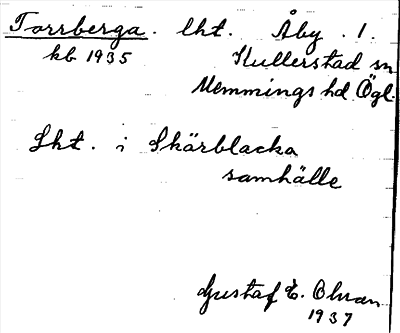 Torrberga. lht. Åby. 1.
kb 1935 Kullerstad sn
Memmings hd Ögl.
Lht. i Skärblacka
samhälle
Gustaf E. Ohran
1937